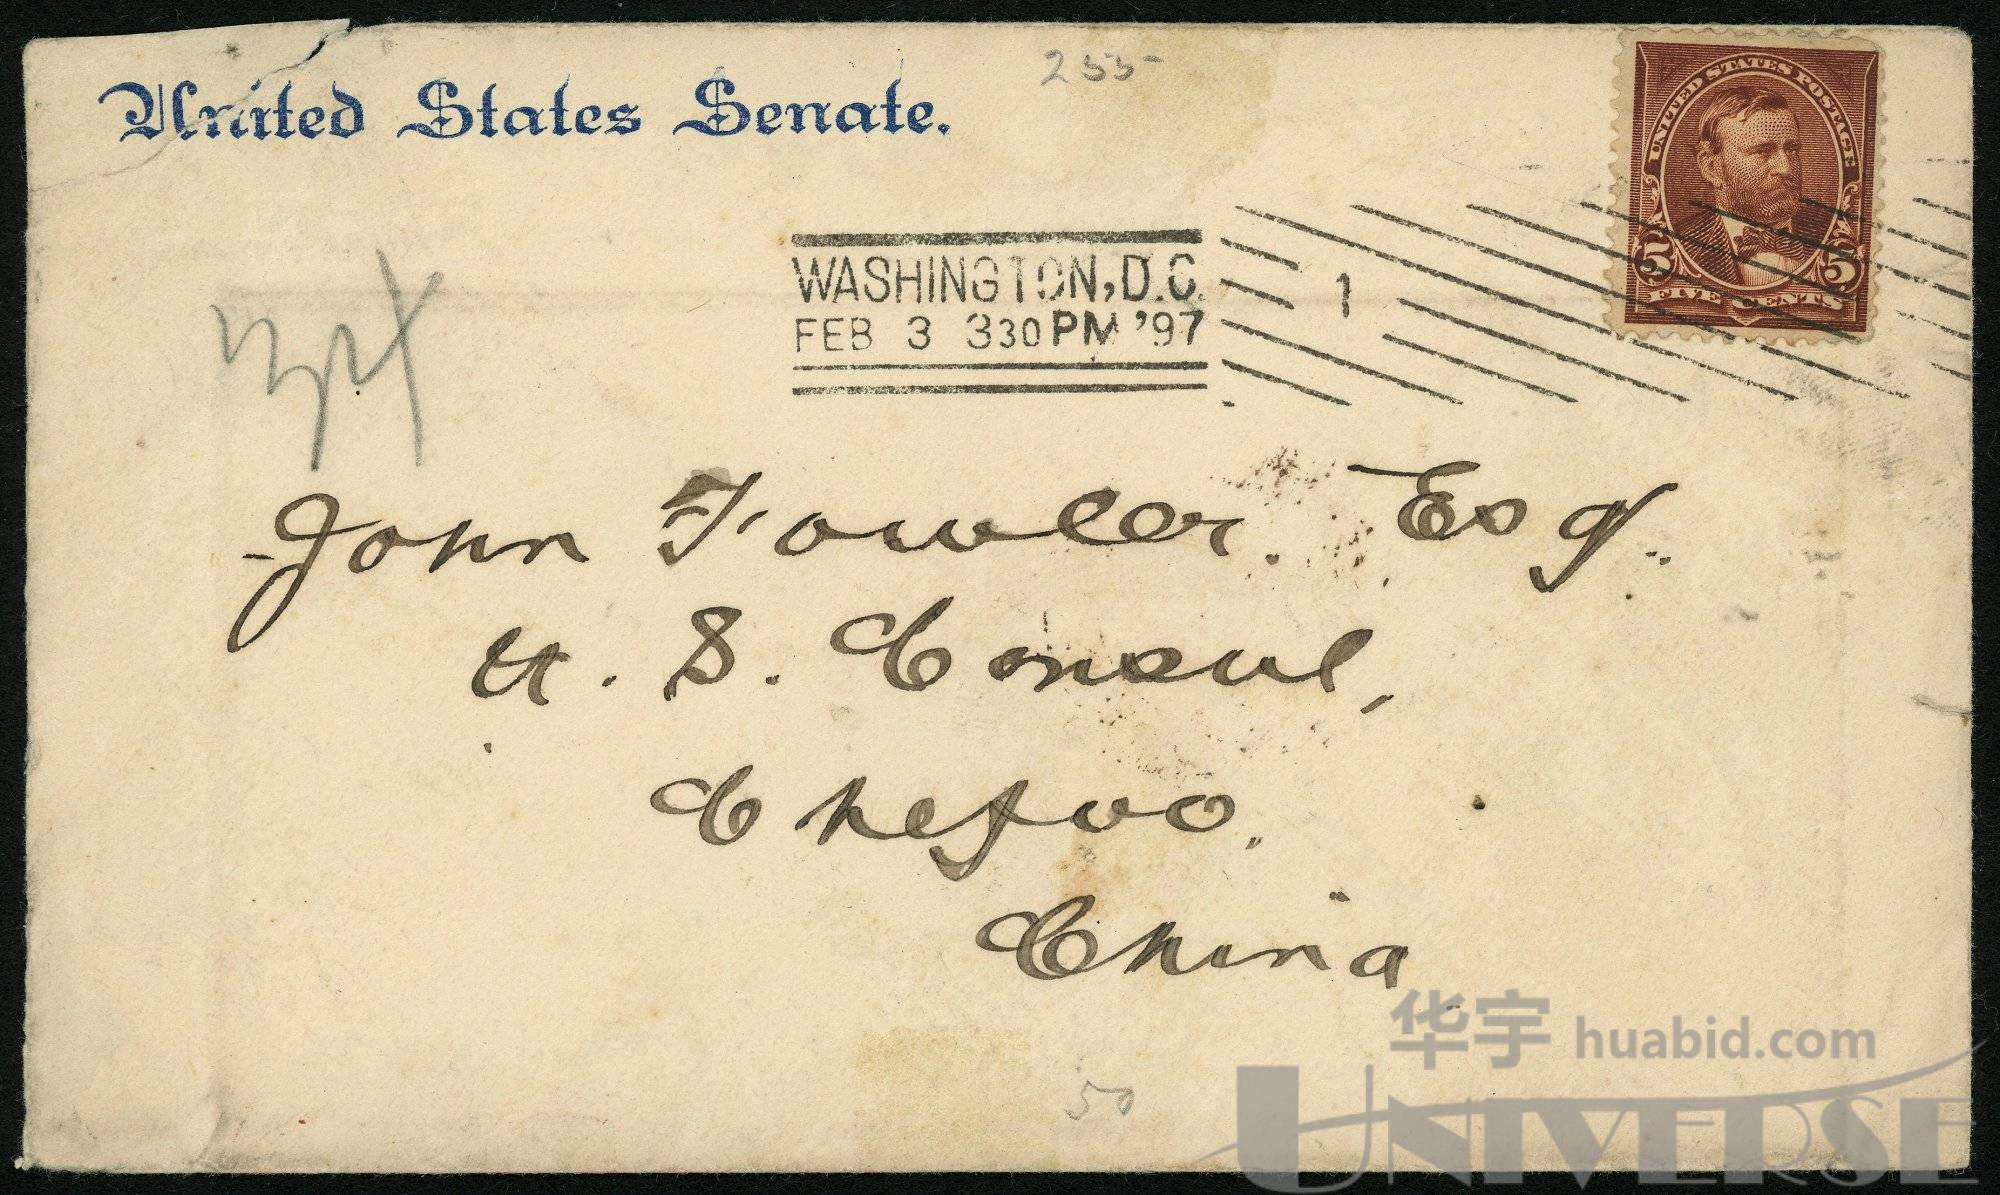 United States Senate.
255-
UNITED STATES POSTAGE
5 5
FIVE CENTS
WASHINGTON, D.C.
FEB 3 330PM '97
1
John Fowler. Esq.
U. S. Consul,
Chefoo.
China
50
华宇 huabid.com
UNIVERSE